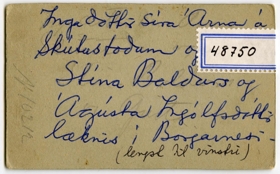 Inga dóttir Síra Árna á
Skútustöðum og
48750
Stina Baldurs og
Ágústa Ingólfsdóttir
læknis í Borgarnesi
(lengst til vinstri)